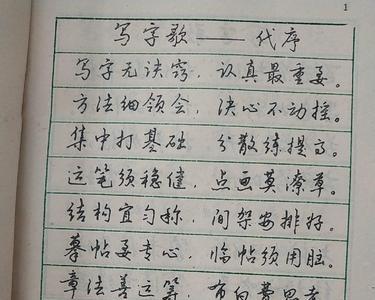 1
写字歌——代序
写字无诀窍，认真最重要。
方法细领会，决心不动摇。
集中打基础 分散练提高。
运笔须稳健，点画莫潦草。
结构宜匀称，间架安排好。
摹帖要专心，临帖须用脑。
章法善运筹，布白费思考